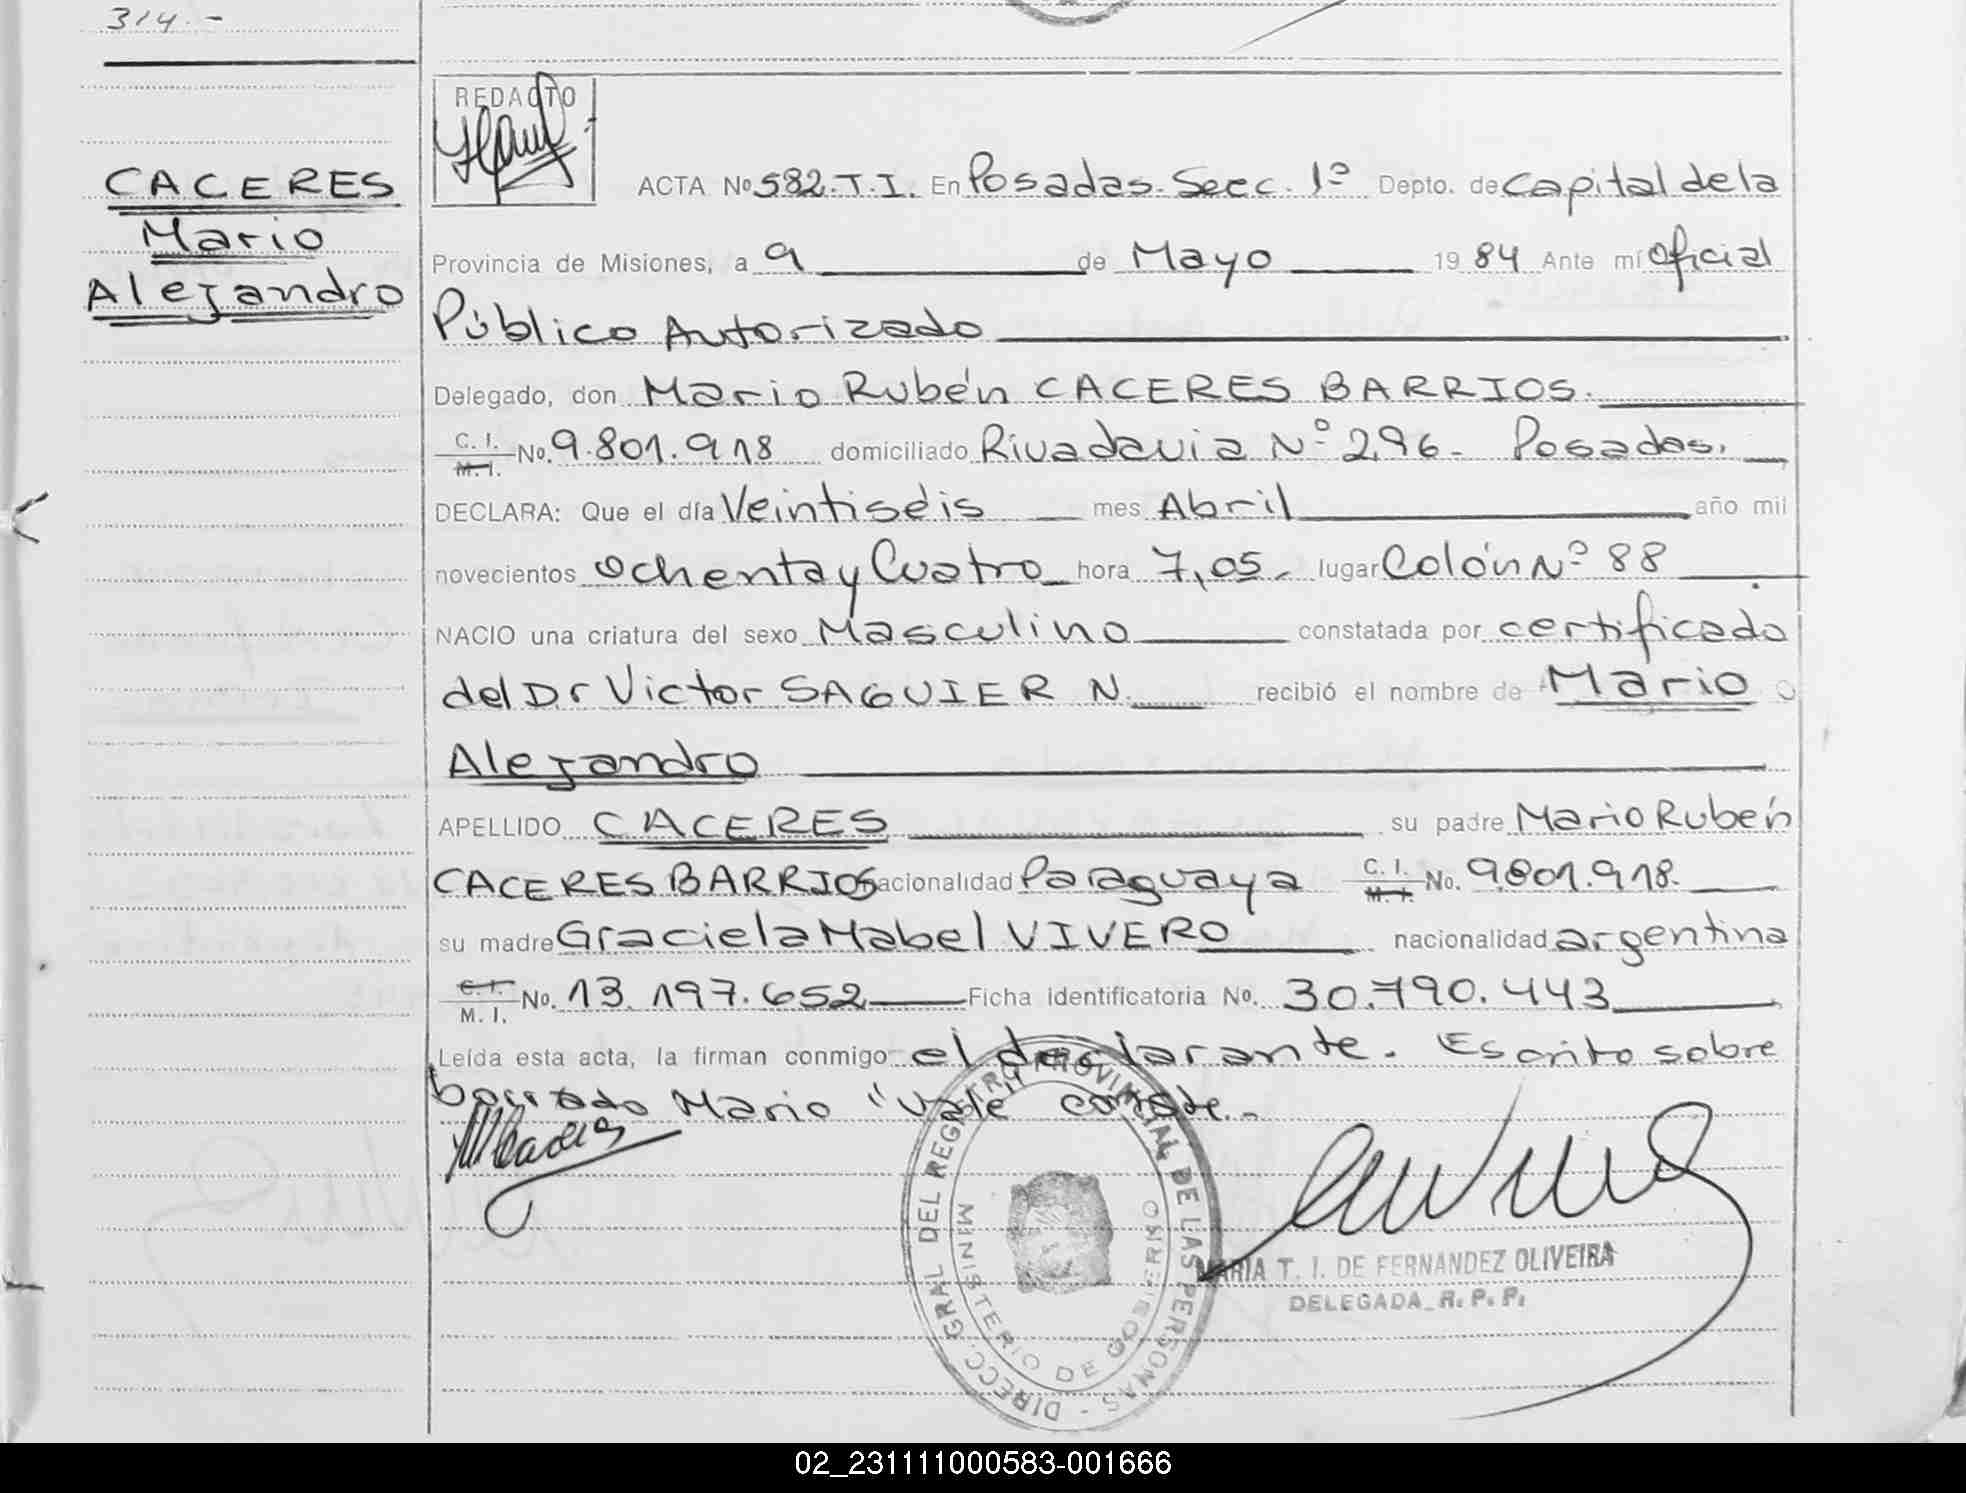 314.-
CACERES
Mario
Alejandro
REDACTO
ACTA No 582.T.I. En Posadas. Secc. 1º Depto. de Capital de la
Provincia de Misiones, a 9 de Mayo 1984 Ante mí Oficial
Público Autorizado
Delegado, don Mario Rubén CACERES BARRIOS.
C. I.
M. I. No. 9.801.918 domiciliado Rivadavia Nº 296- Posadas.
DECLARA: Que el día Veintiséis mes Abril año mil
novecientos Ochenta y Cuatro hora 7,05. lugar Colón Nº 88
NACIO una criatura del sexo Masculino constatada por certificado
del Dr Victor SAGUIER N. recibió el nombre de Mario
Alejandro
APELLIDO CACERES su padre Mario Rubén
CACERES BARRIOS nacionalidad Paraguaya C. I.
M. I. No. 9.801.918.
su madre Graciela Mabel VIVERO nacionalidad argentina
C. I.
M. I. No. 13.197.652 Ficha identificatoria No. 30.790.443
Leída esta acta, la firman conmigo el declarante. Escrito sobre
borrado Mario "vale" conste.-
DIRECC. GRAL DEL REGISTRO PROVINCIAL DE LAS PERSONAS -
MINISTERIO DE GOBIERNO
MARIA T. I. DE FERNANDEZ OLIVEIRA
DELEGADA R. P. P.
02_231111000583-001666